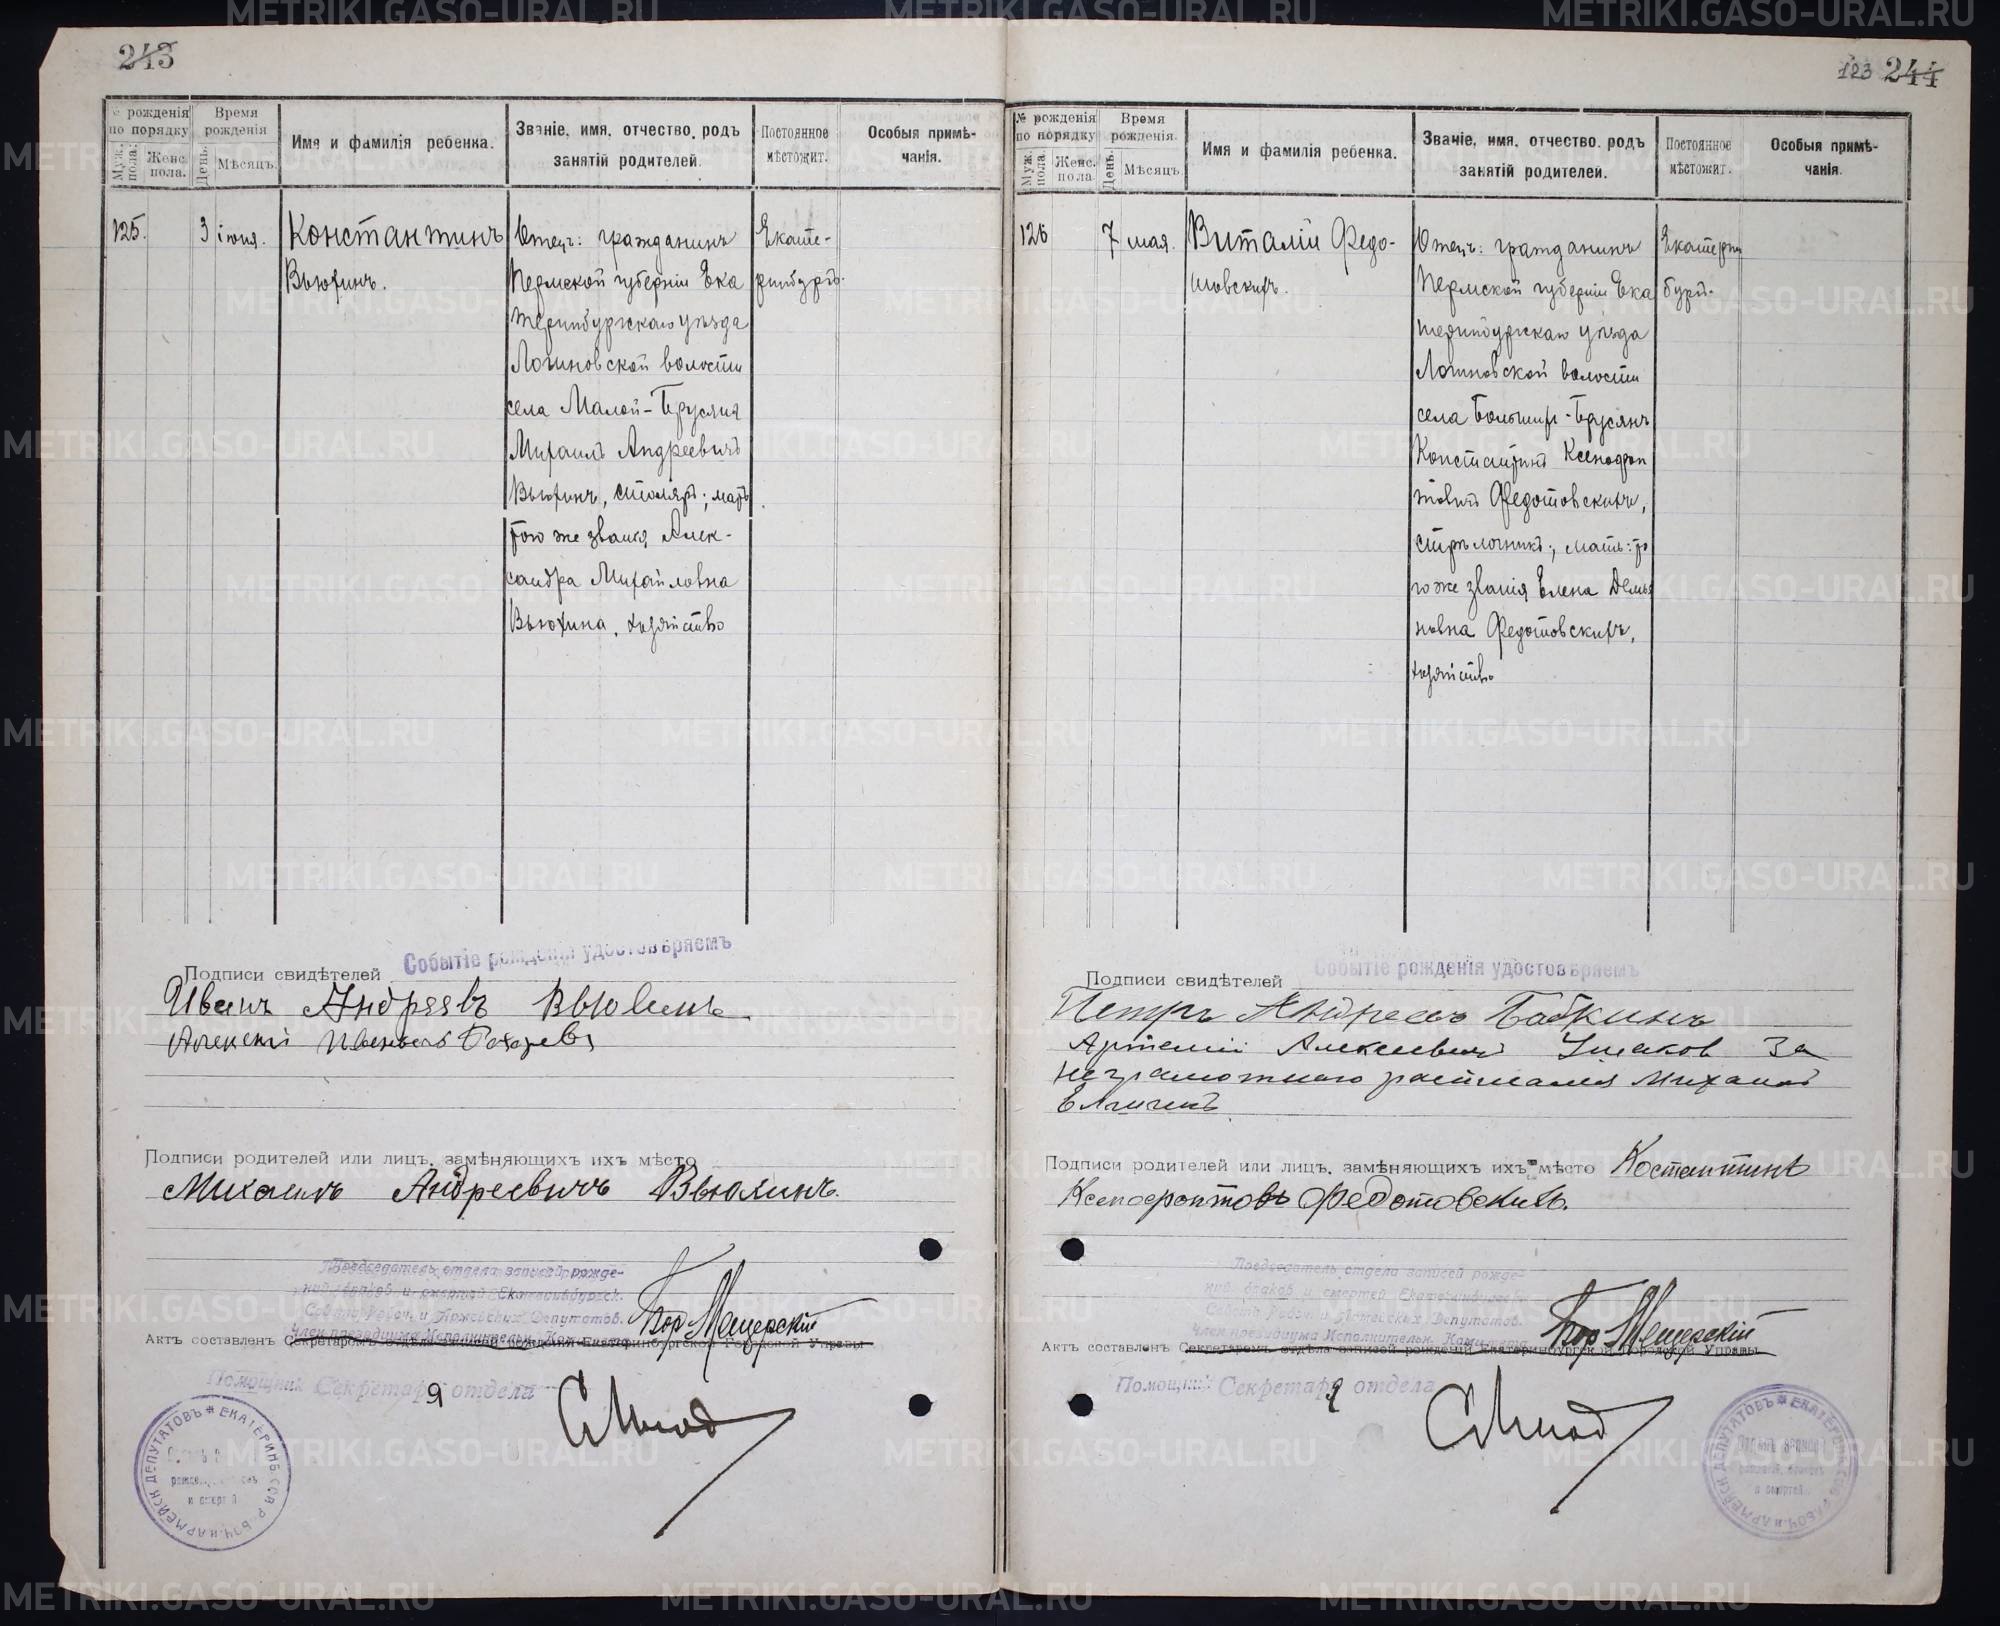 243
№ рожденія по порядку
Муж. пола.
Женс. пола.
Время рожденія
День.
Мѣсяцъ.
Имя и фамилія ребенка.
Званіе, имя, отчество, родъ
занятій родителей.
Постоянное
мѣстожит.
Особыя примѣ-
чанія.
125.
3 іюня.
Константинъ
Вьюхинъ.
Отецъ: гражданинъ
Пермской губерніи Ека
теринбургскаго уѣзда
Логиновской волости
села Малой-Брусяна
Михаилъ Андреевичъ
Вьюхинъ, столяръ; мать
того же званія Алек-
сандра Михайловна
Вьюхина, хозяйство
Екате-
ринбургъ.
Подписи свидѣтелей
Событіе рожденія удостовѣряемъ
Иванъ Андреевъ Вьюхинъ
Алексей
Подписи родителей или лицъ, замѣняющихъ ихъ мѣсто
Михаилъ Андреевичъ Вьюхинъ.
Предсѣдатель отдела записей рожде-
ній, браковъ и смертей Екатеринбургск.
Совѣта Рабоч. и Армейских Депутатов.
Член президиума Исполнительн. Комитета
Бор. Мещерскій
Актъ составленъ Секретаремъ отдѣла записей рожденій Екатеринбургской Городской Управы
Помощник Секретаря отдела
123 244
№ рожденія по порядку
Муж. пола.
Женс. пола
Время рожденія.
День.
Мѣсяцъ
Имя и фамилія ребенка.
Званіе, имя, отчество, родъ
занятій родителей.
Постоянное
мѣстожит.
Особыя примѣ-
чанія.
126
7 мая.
Виталій Федо-
товскихъ.
Отецъ: гражданинъ
Пермской губерніи Ека
теринбургскаго уѣзда
Логиновской волости
села Большихъ-Брусянъ
Константинъ Ксенофон
товъ Федотовскихъ,
стрѣлочникъ; мать: то
гоже званія Елена Демья
новна Федотовскихъ,
хозяйство
Екатерин
бургъ.
Подписи свидѣтелей
Событіе рожденія удостовѣряемъ
Петръ Андреевъ Бабкинъ
Артемій Алексеевичъ Ушаков За
неграмотнаго росписался Михаилъ
Подписи родителей или лицъ, замѣняющихъ ихъ мѣсто Костантинъ
Ксенофонтовъ Федотовскихъ.
Предсѣдатель отдела записей рожде-
ній браков и смертей Екатеринбургск.
Совѣта Рабоч. и Армейских Депутатов.
Член президиума Исполнительн. Комитета
Бор. Мещерскій
Актъ составленъ Секретаремъ отдѣла записей рожденій Екатеринбургской Городской Управы
Помощник Секретаря отдела
METRIKI.GASO-URAL.RU